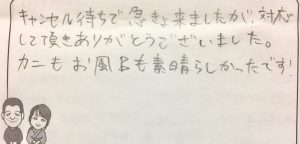 キャンセル待ちで急きょ来ましたが、対応
して頂きありがとうございました。
カニもお風呂も素晴らしかったです!